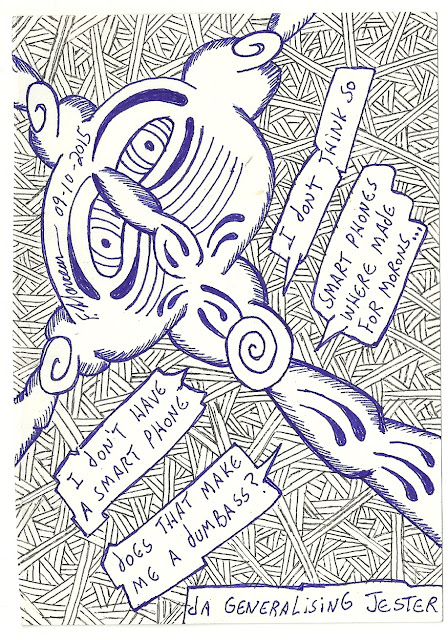 I DON'T HAVE
A SMART PHONE
DOES THAT MAKE
ME A DUMBASS?
I DON'T THINK SO
SMART PHONES
WHERE MADE
FOR MORONS...
09-10-2015
DA GENERALISING JESTER